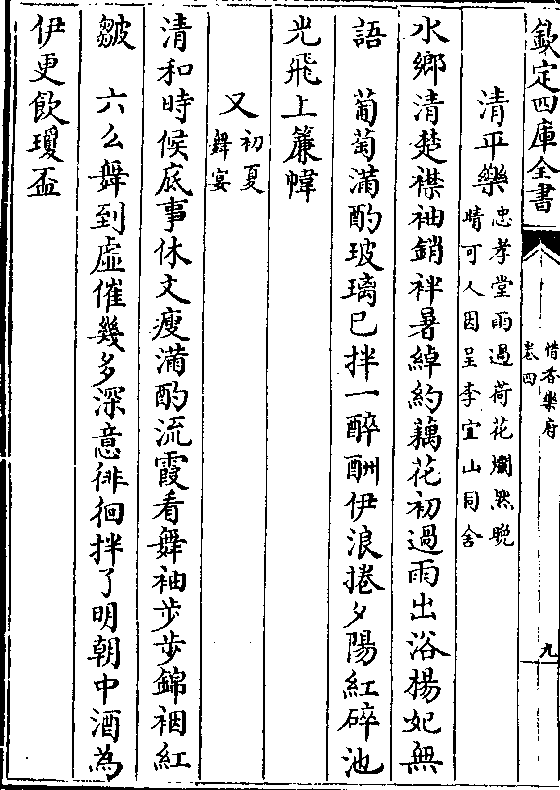 欽定四庫全書
惜香樂府
卷四
九
清平樂
忠孝堂雨過荷花爛然晚
晴可人因呈李宜山同舍
水鄉清楚襟袖銷袢暑綽約藕花初過雨出浴楊妃無
語　葡萄滿酌玻璃已拌一醉酬伊浪捲夕陽紅碎池
光飛上簾幃
又
初夏
舞宴
清和時候底事休文瘦滿酌流霞看舞袖步步錦裀紅
皺　六么舞到虛催幾多深意徘徊拌了明朝中酒為
伊更飲瓊盃